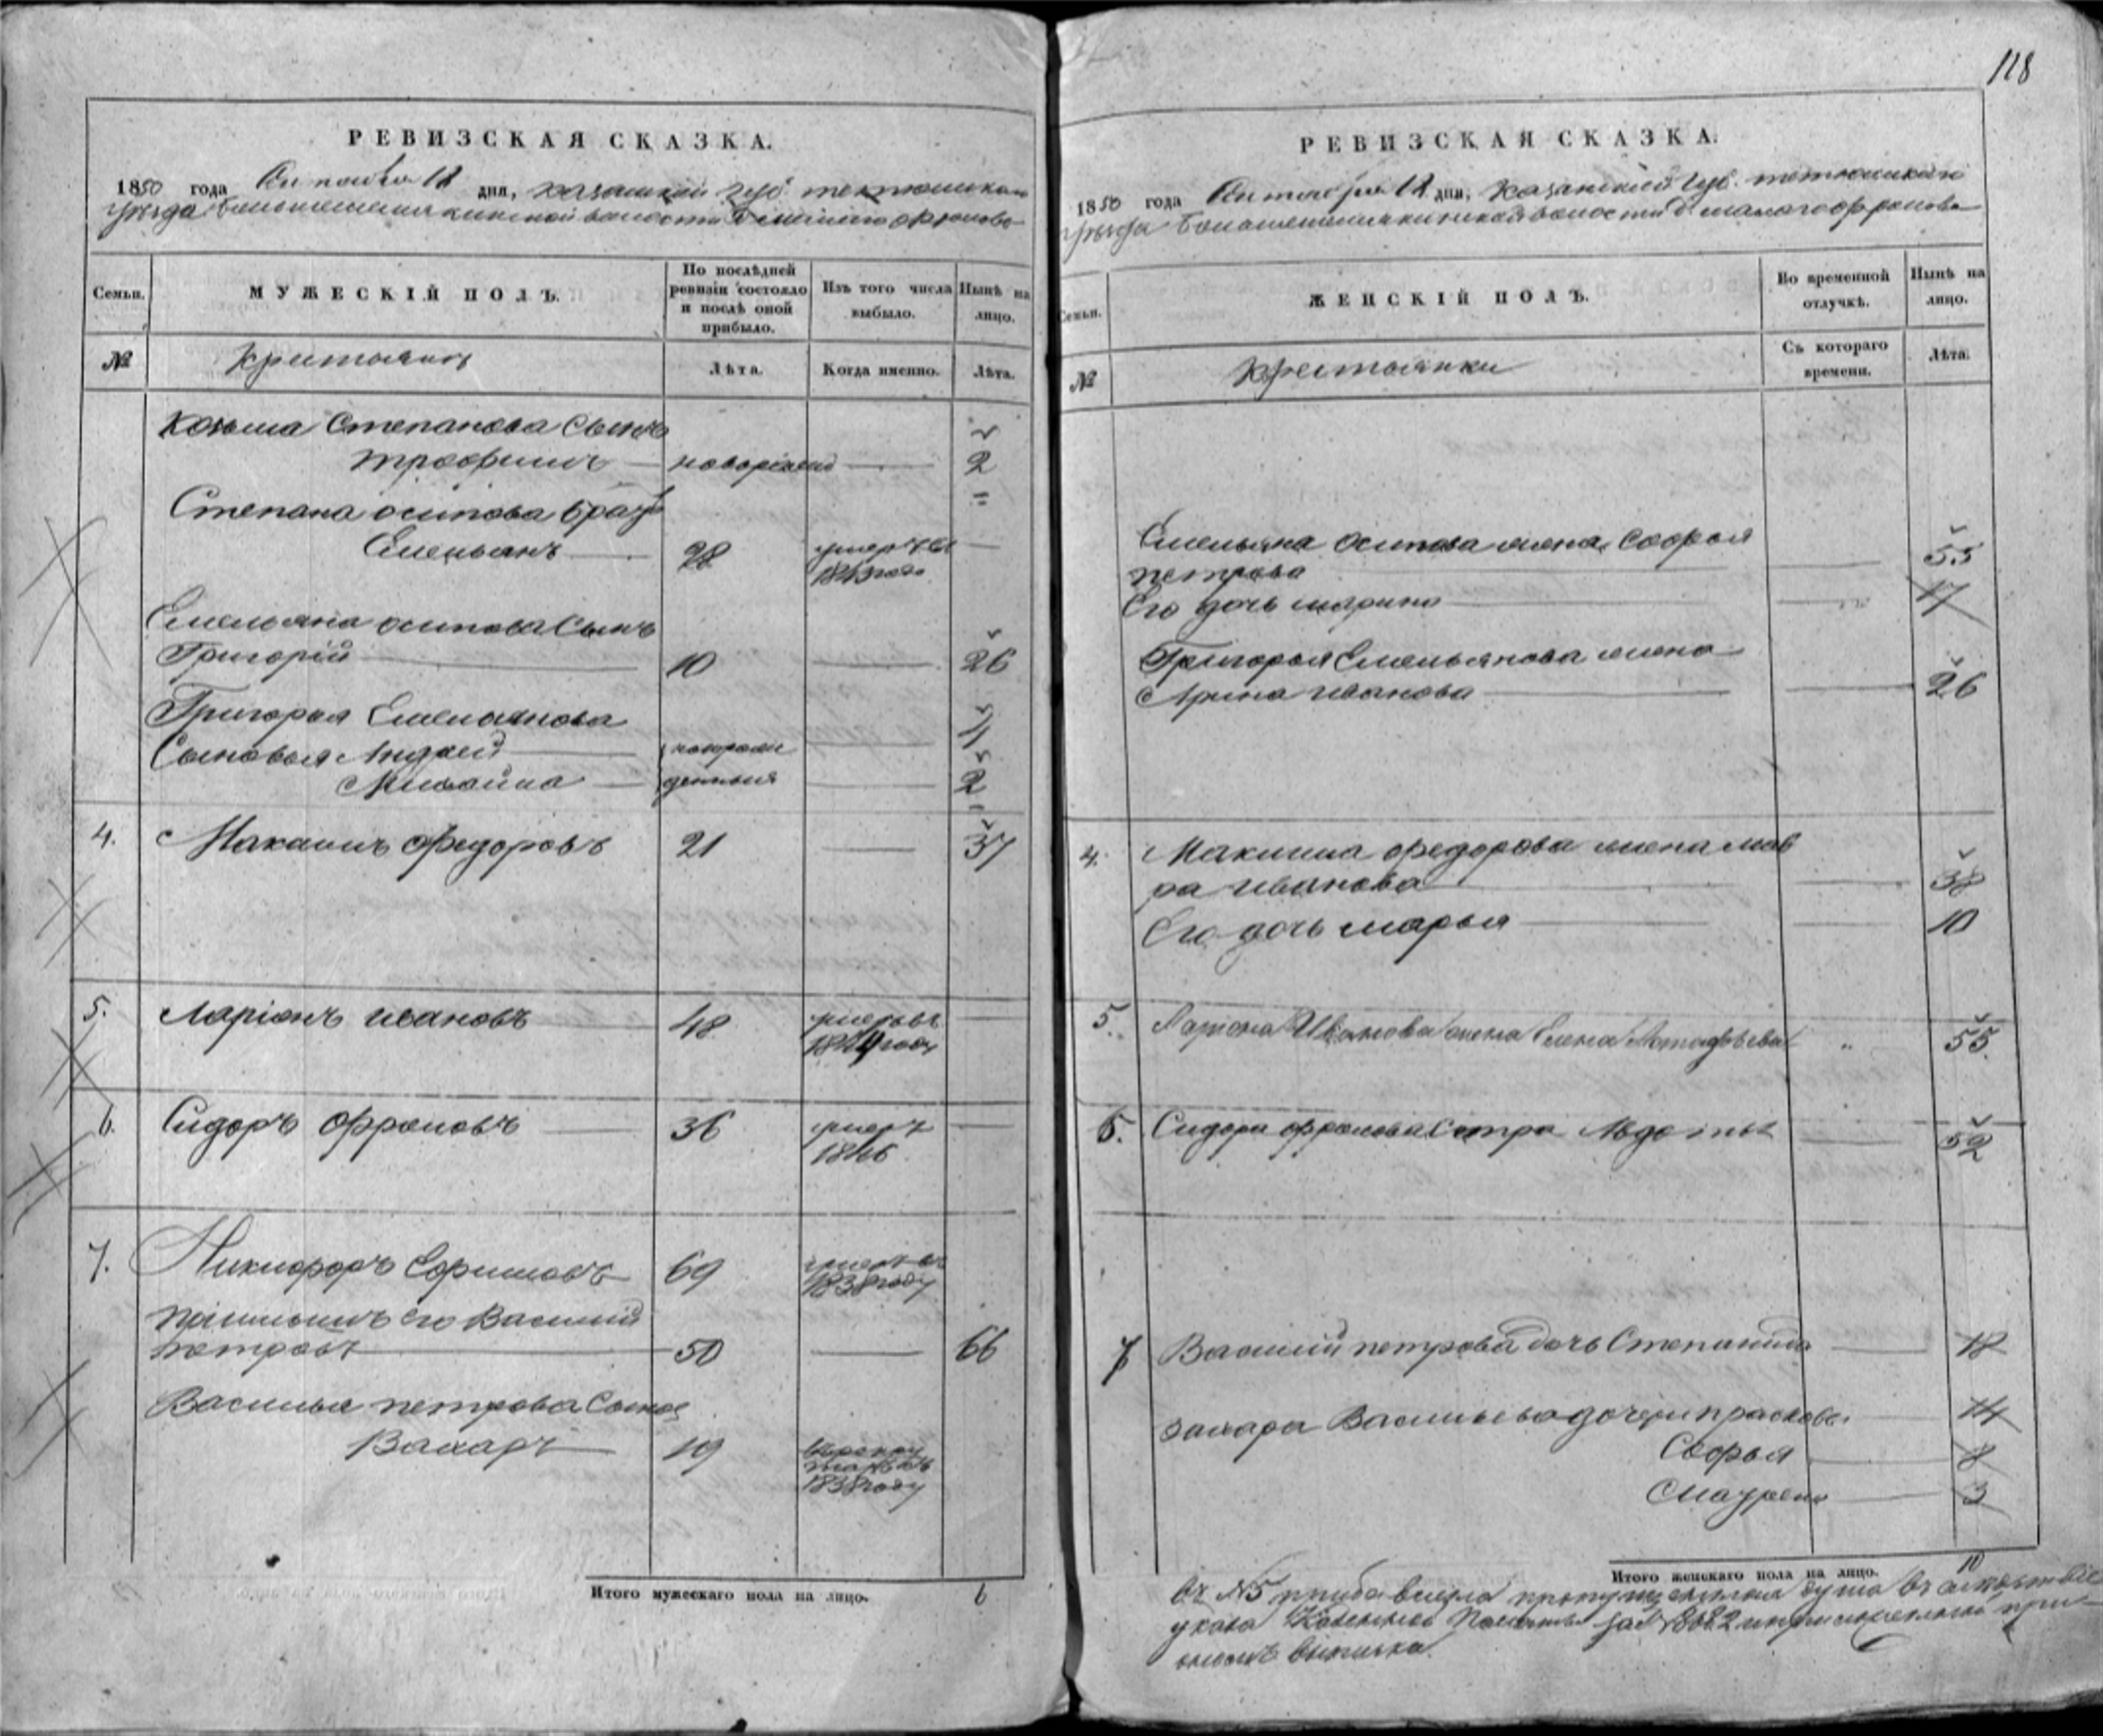 118
РЕВИЗСКАЯ СКАЗКА.
1850 года Октября 12 дня, Казанской губ. тетюшскаго
уѣзда волости
Семьи.
МУЖЕСКІЙ ПОЛЪ.
По послѣдней ревизіи состояло и послѣ оной прибыло.
Изъ того числа выбыло.
Нынѣ на лицо.
№
Крестьянъ
Лѣта.
Когда именно.
Лѣта.
Козьма Степанова Сынъ
трофимъ новорожден 2
Степана осипова братъ
Емельянъ 28 умеръ въ
1843 году
Емельяна осипова Сынъ
Григорій 10 26
Григорья Емельянова
Сыновья Андрей новорож 11
Михайла денныя 2
4. Макаимъ Фидоровъ 21 37
5. Ларіонъ ивановъ 48 умеръ въ
1844 году
6. Сидоръ Фроловъ 36 умеръ
1846
7. Никифоръ Ефимовъ 69 умеръ въ
1838 году
пріимышъ его Василий
петровъ 50 66
Василья петрова Сынъ
Захаръ 19
1838 году
Итого мужескаго пола на лицо. 6
РЕВИЗСКАЯ СКАЗКА.
1850 года Октября 12 дня, Казанской губ. тетюшскаго
уѣзда волости
Семьи.
ЖЕНСКІЙ ПОЛЪ.
Во временной отлучкѣ.
Нынѣ на лицо.
№
Крестьянки
Съ котораго времени.
Лѣта.
Емельяна Осипова жена Софья
петрова 55
Его дочь марина 17
Григорья Емельянова жена
Арина иванова 26
4. Макиима федорова жена мав
ра иванова 38
Его дочь марья 10
5. Лариона Иванова жена Елена Астафьева " 55
6. Сидора фролова Сестра Авдотья 52
7 Василий петрова дочь Степанида 18
захара Васильева дочери прасковья 14
Софья 8
Маурена 3
Итого женскаго пола на лицо. 10
въ №5 прибавлена пропущенная душа въ слѣдствіе
указа Казенной Палаты за № 8682
выписка.